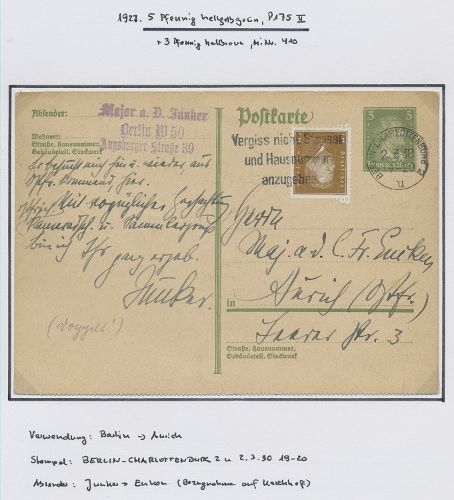 1927. 5 Pfennig hellgelbgrün, P175 II
+ 3 Pfennig hellbraun, Mi.Nr. 410
Absender:
Major a. D. Junker
Berlin W 50
Augsburger Straße 39
Wohnort:
Straße, Hausnummer,
Gebäudeteil, Stockwerk
Postkarte
Vergiss nicht Strasse
und Hausnummer
anzugeben
5 5
BERLIN-CHARLOTTENBURG 2
2.3.30
u
Er besucht mich hin u. wieder aus
hier.
Mit vorzüglicher Hochachtung
Kameradsch. u. Sammlergruß
bin ich Ihr ganz ergeb.
Junker.
(Doppelt!)
Herrn
Maj. a. d. C. Fr. Eucken
in Aurich (Ostfr.)
Leerer Str. 3
Straße, Hausnummer,
Gebäudeteil, Stockwerk
Verwendung: Berlin → Aurich
Stempel: BERLIN-CHARLOTTENBURG 2 u 2.3.30 19-20
Absender: Junker → Eucken (Bezugnahme auf